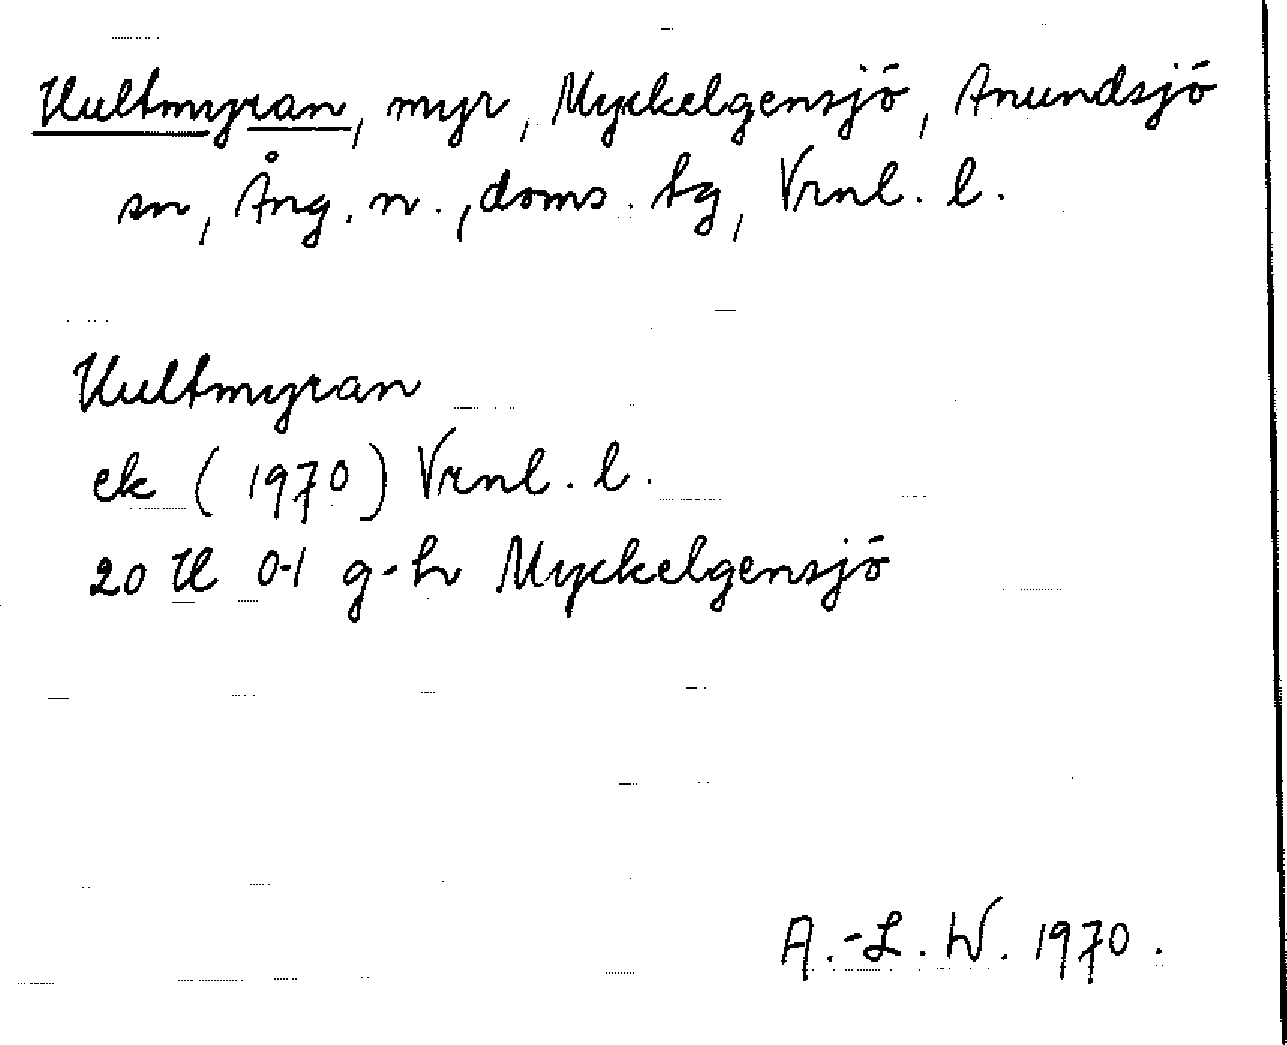 Hultmyran, myr, Myckelgensjö, Anundsjö
sn, Ång. n., doms. tg, Vrnl. l.
Hultmyran
ek (1970) Vrnl. l.
20 H 0-1 g-h Myckelgensjö
A.-L. W. 1970.